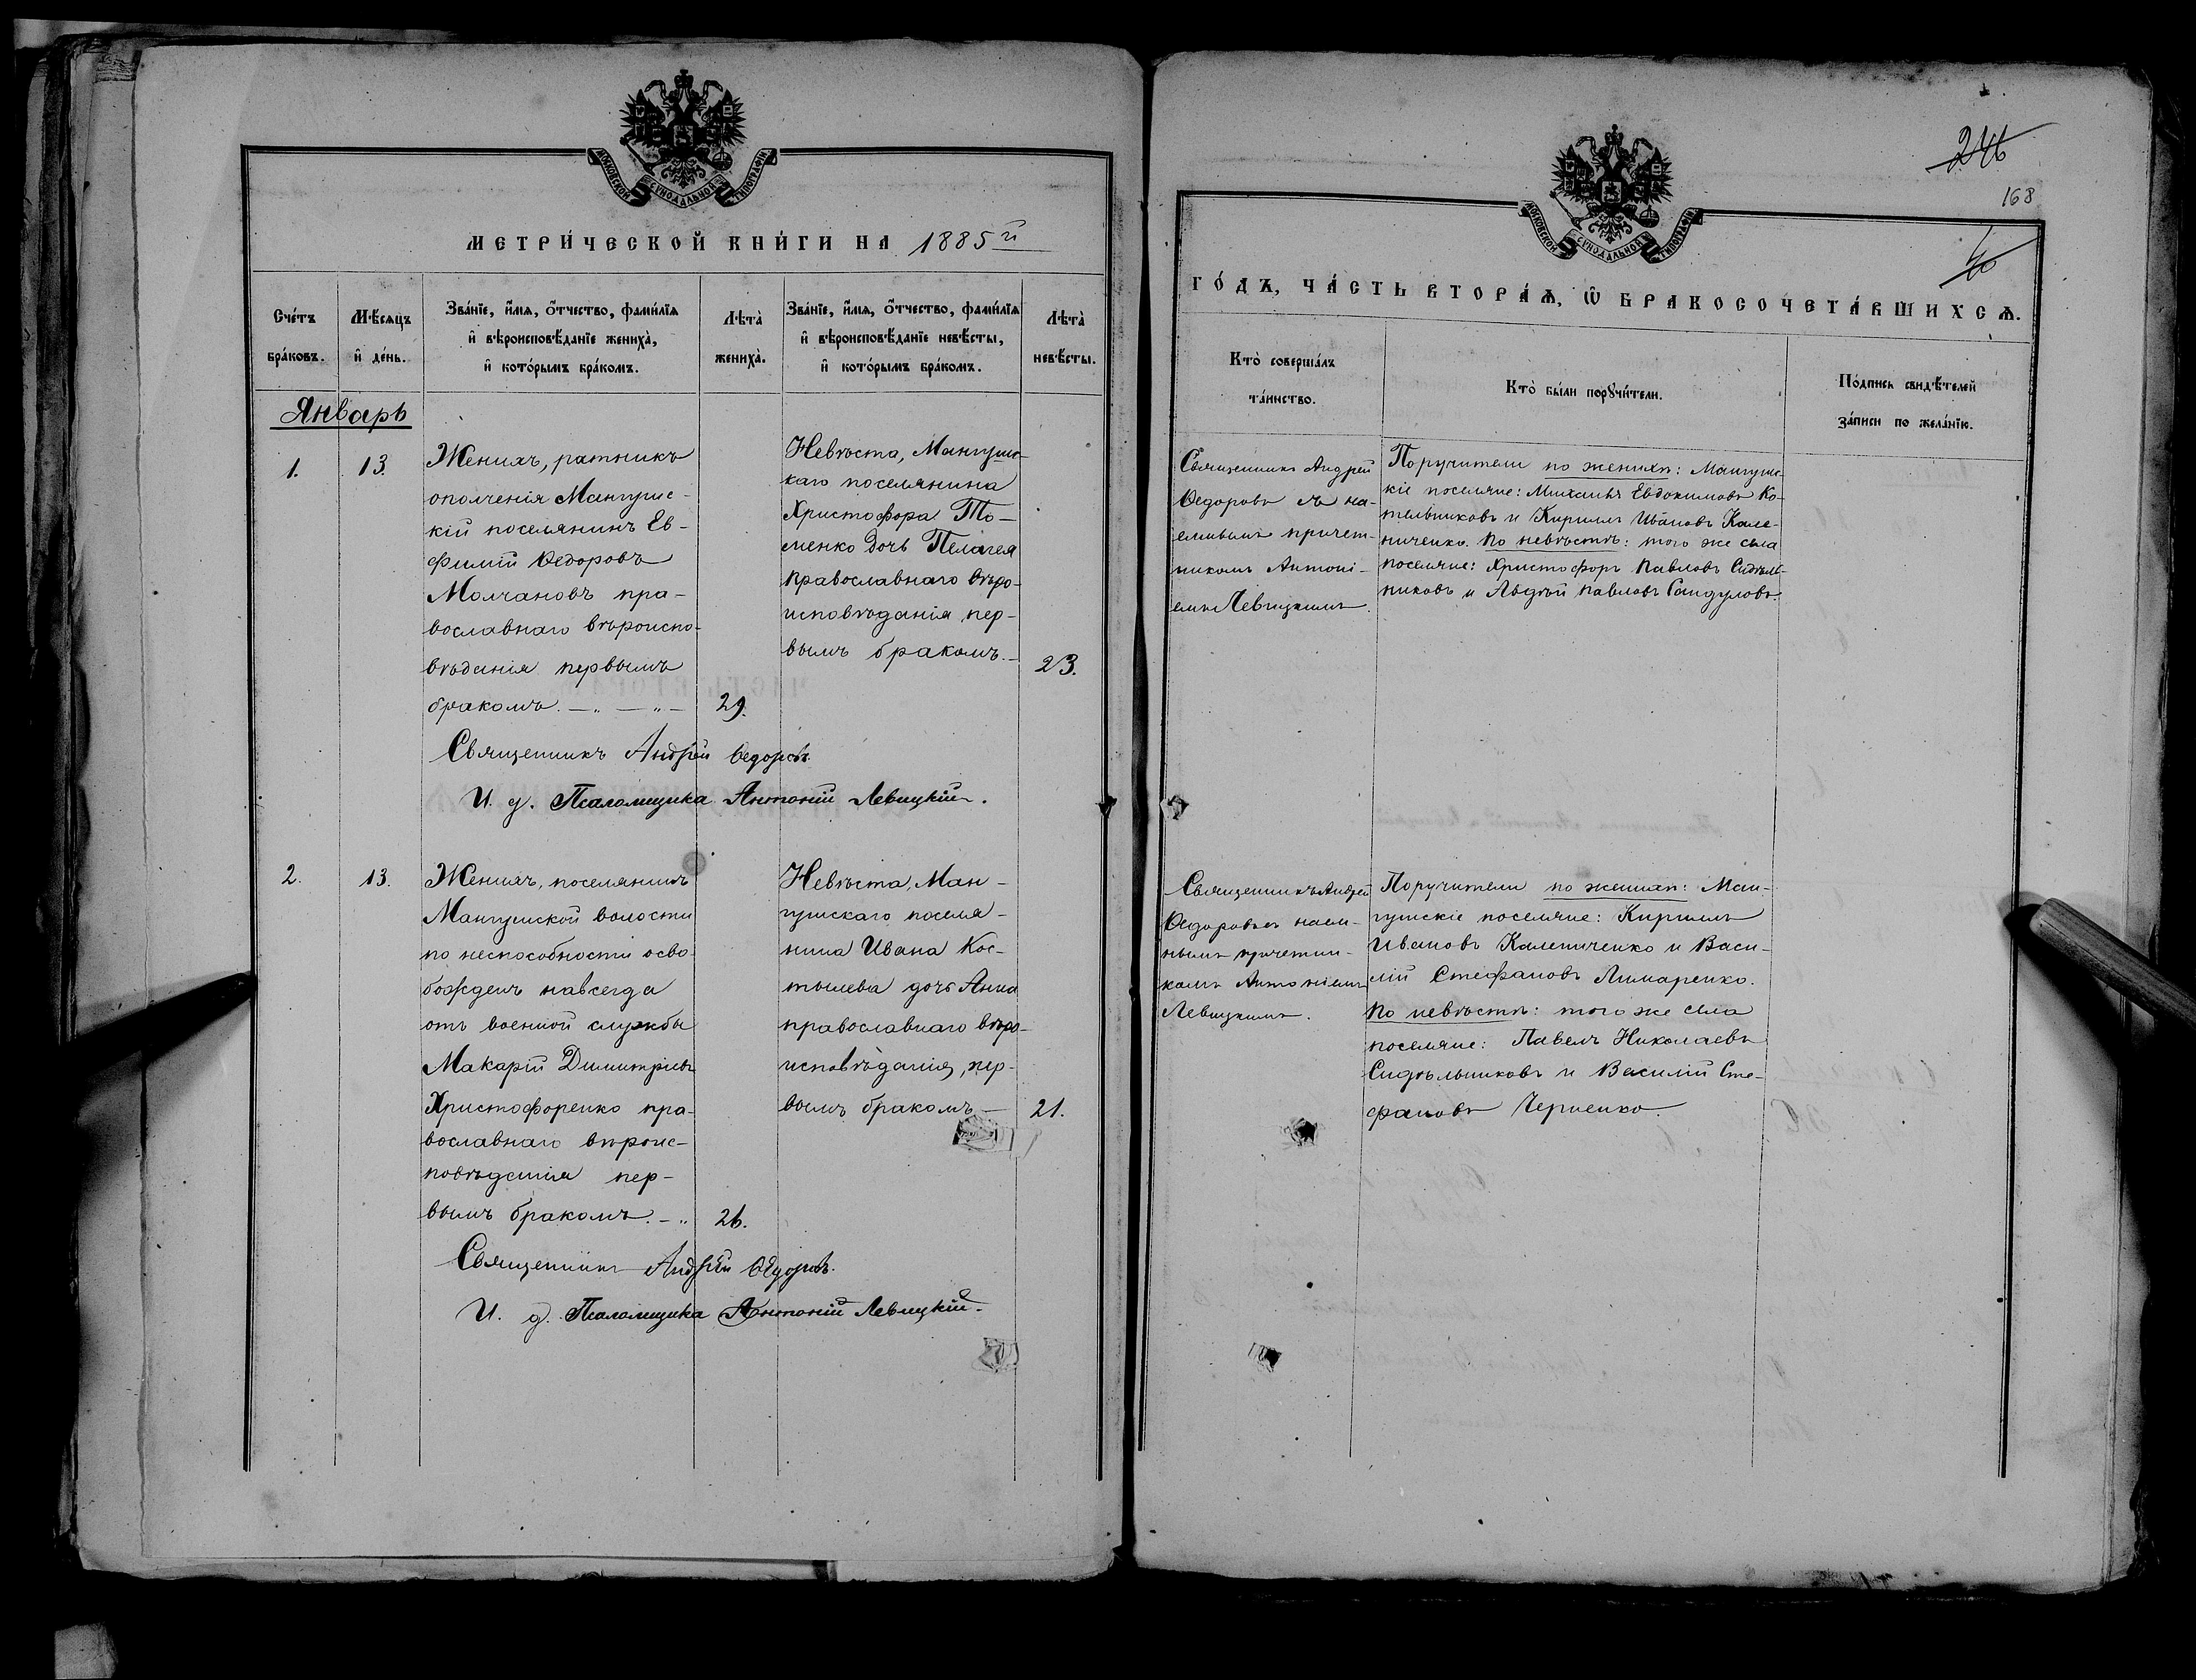 МОСКОВСКОЙ СУНОДАЛЬНОЙ ТИПОГРАФІИ
МЕТРИ́ЧЕСКОЙ КНИ́ГИ НА 1885й
Сче́тъ бра́ковъ.
Мѣ́сяцъ и҆ де́нь.
Зва́нїе, и҆́мѧ, ѻ҆́тчество, фами́лїѧ
и҆ вѣроисповѣ́данїе женихà,
и҆ кото́рымъ бра́комъ.
Лѣтà женихà.
Зва́нїе, и҆́мѧ, ѻ҆́тчество, фами́лїѧ
и҆ вѣроисповѣ́данїе невѣ́сты,
и҆ кото́рымъ бра́комъ.
Лѣтà невѣ́сты.
Январь
1.
13.
Женихъ, ратникъ
ополченія Мангушс-
кій поселянинъ Ев-
фимій Ѳедоровъ
Молчановъ пра-
вославнаго вѣроиспо-
вѣданія первымъ
бракомъ. — „ — „ —
29.
Невѣста, Мангушс-
каго поселянина
Христофора То-
менко дочь Пелагея
православнаго вѣро-
исповѣданія, пер-
вымъ бракомъ. —
23.
Священникъ Андрей Ѳедоровъ.
И. д. Псаломщика Антоній Левицкій.
2.
13.
Женихъ, поселянинъ
Мангушской волости
по неспособности осво-
божденъ навсегда
отъ военной службы
Макарій Димитріевъ
Христофоренко пра-
вославнаго вѣроис-
повѣданія пер-
вымъ бракомъ. — „
26.
Невѣста, Ман-
гушскаго поселя-
нина Ивана Кос-
тылева дочь Анна
православнаго вѣро-
исповѣданія, пер-
вымъ бракомъ —
21.
Священникъ Андрей Ѳедоровъ.
И. д. Псаломщика Антоній Левицкій.
246
168
МОСКОВСКОЙ СУНОДАЛЬНОЙ ТИПОГРАФІИ
ГО́ДЪ, ЧА́СТЬ ВТОРА́Ѧ, Ѽ БРАКОСОЧЕТА́ВШИХСѦ.
Кто̀ соверша́лъ
та́инство.
Кто̀ бы́ли порꙋчи́тели.
По́дпись свидѣ́телей
за́писи по жела́нїю.
Священникъ Андрей
Ѳедоровъ съ на-
емнымъ причет-
никомъ Антоні-
емъ Левицкимъ.
Поручители по женихѣ: Мангушс-
кіе поселяне: Михаилъ Евдокимовъ Ко-
тельниковъ и Кириллъ Ивановъ Кале-
ниченко. По невѣстѣ: того же села
поселяне: Христофоръ Павловъ Сидѣль-
никовъ и Авдѣй Павловъ Гайдуловъ.
Священникъ Андрей
Ѳедоровъ съ наем-
нымъ причетни-
комъ Антоніемъ
Левицкимъ.
Поручители по женихѣ: Ман-
гушскіе поселяне: Кириллъ
Ивановъ Калениченко и Васи-
лій Стефановъ Лимаренко.
По невѣстѣ: того же села
поселяне: Павелъ Николаевъ
Сидѣльниковъ и Василій Сте-
фановъ Черненко.